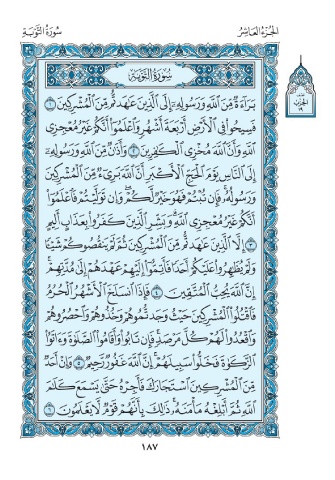 الجزء العاشر
سورة التوبة
الحزب ١٩
سُورَةُ التَّوْبَةِ
بَرَآءَةٌ مِّنَ ٱللَّهِ وَرَسُولِهِۦٓ إِلَى ٱلَّذِينَ عَٰهَدتُّم مِّنَ ٱلْمُشْرِكِينَ ١
فَسِيحُوا۟ فِى ٱلْأَرْضِ أَرْبَعَةَ أَشْهُرٍ وَٱعْلَمُوٓا۟ أَنَّكُمْ غَيْرُ مُعْجِزِى
ٱللَّهِ وَأَنَّ ٱللَّهَ مُخْزِى ٱلْكَٰفِرِينَ ٢ وَأَذَٰنٌ مِّنَ ٱللَّهِ وَرَسُولِهِۦٓ
إِلَى ٱلنَّاسِ يَوْمَ ٱلْحَجِّ ٱلْأَكْبَرِ أَنَّ ٱللَّهَ بَرِىٓءٌ مِّنَ ٱلْمُشْرِكِينَ
وَرَسُولُهُۥ فَإِن تُبْتُمْ فَهُوَ خَيْرٌ لَّكُمْ وَإِن تَوَلَّيْتُمْ فَٱعْلَمُوٓا۟
أَنَّكُمْ غَيْرُ مُعْجِزِى ٱللَّهِ وَبَشِّرِ ٱلَّذِينَ كَفَرُوا۟ بِعَذَابٍ أَلِيمٍ
٣ إِلَّا ٱلَّذِينَ عَٰهَدتُّم مِّنَ ٱلْمُشْرِكِينَ ثُمَّ لَمْ يَنقُصُوكُمْ شَيْـًٔا
وَلَمْ يُظَٰهِرُوا۟ عَلَيْكُمْ أَحَدًا فَأَتِمُّوٓا۟ إِلَيْهِمْ عَهْدَهُمْ إِلَىٰ مُدَّتِهِمْ
إِنَّ ٱللَّهَ يُحِبُّ ٱلْمُتَّقِينَ ٤ فَإِذَا ٱنسَلَخَ ٱلْأَشْهُرُ ٱلْحُرُمُ
فَٱقْتُلُوا۟ ٱلْمُشْرِكِينَ حَيْثُ وَجَدتُّمُوهُمْ وَخُذُوهُمْ وَٱحْصُرُوهُمْ
وَٱقْعُدُوا۟ لَهُمْ كُلَّ مَرْصَدٍ فَإِن تَابُوا۟ وَأَقَامُوا۟ ٱلصَّلَوٰةَ وَءَاتَوُا۟
ٱلزَّكَوٰةَ فَخَلُّوا۟ سَبِيلَهُمْ إِنَّ ٱللَّهَ غَفُورٌ رَّحِيمٌ ٥ وَإِنْ أَحَدٌ
مِّنَ ٱلْمُشْرِكِينَ ٱسْتَجَارَكَ فَأَجِرْهُ حَتَّىٰ يَسْمَعَ كَلَٰمَ
ٱللَّهِ ثُمَّ أَبْلِغْهُ مَأْمَنَهُۥ ذَٰلِكَ بِأَنَّهُمْ قَوْمٌ لَّا يَعْلَمُونَ ٦
١٨٧